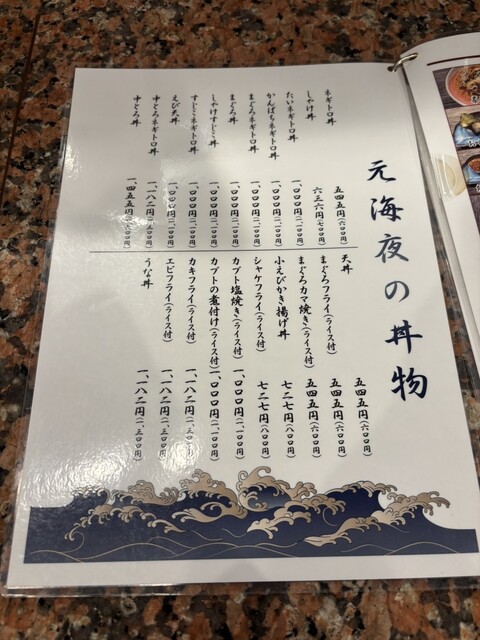 元海夜の丼物
ネギトロ丼 五四五円(六〇〇円)
しゃけ丼 六三六円(七〇〇円)
たいネギトロ丼 一、〇〇〇円(一、一〇〇円)
かんぱちネギトロ丼 一、〇〇〇円(一、一〇〇円)
まぐろネギトロ丼 一、〇〇〇円(一、一〇〇円)
まぐろ丼 一、〇〇〇円(一、一〇〇円)
しゃけすじこ丼 一、〇〇〇円(一、一〇〇円)
すじこネギトロ丼 一、〇〇〇円(一、一〇〇円)
えび天丼 一、〇〇〇円(一、一〇〇円)
中とろネギトロ丼 一、一八二円(一、三〇〇円)
中とろ丼 一、四五五円(一、六〇〇円)
天丼 五四五円(六〇〇円)
まぐろフライ(ライス付) 五四五円(六〇〇円)
まぐろカマ焼き(ライス付) 五四五円(六〇〇円)
小えびかき揚げ丼 七二七円(八〇〇円)
シャケフライ(ライス付) 七二七円(八〇〇円)
カブト塩焼き(ライス付) 一、〇〇〇円(一、一〇〇円)
カブトの煮付け(ライス付) 一、〇〇〇円(一、一〇〇円)
カキフライ(ライス付) 一、一八二円(一、三〇〇円)
エビフライ(ライス付) 一、一八二円(一、三〇〇円)
うな丼 一、一八二円(一、三〇〇円)